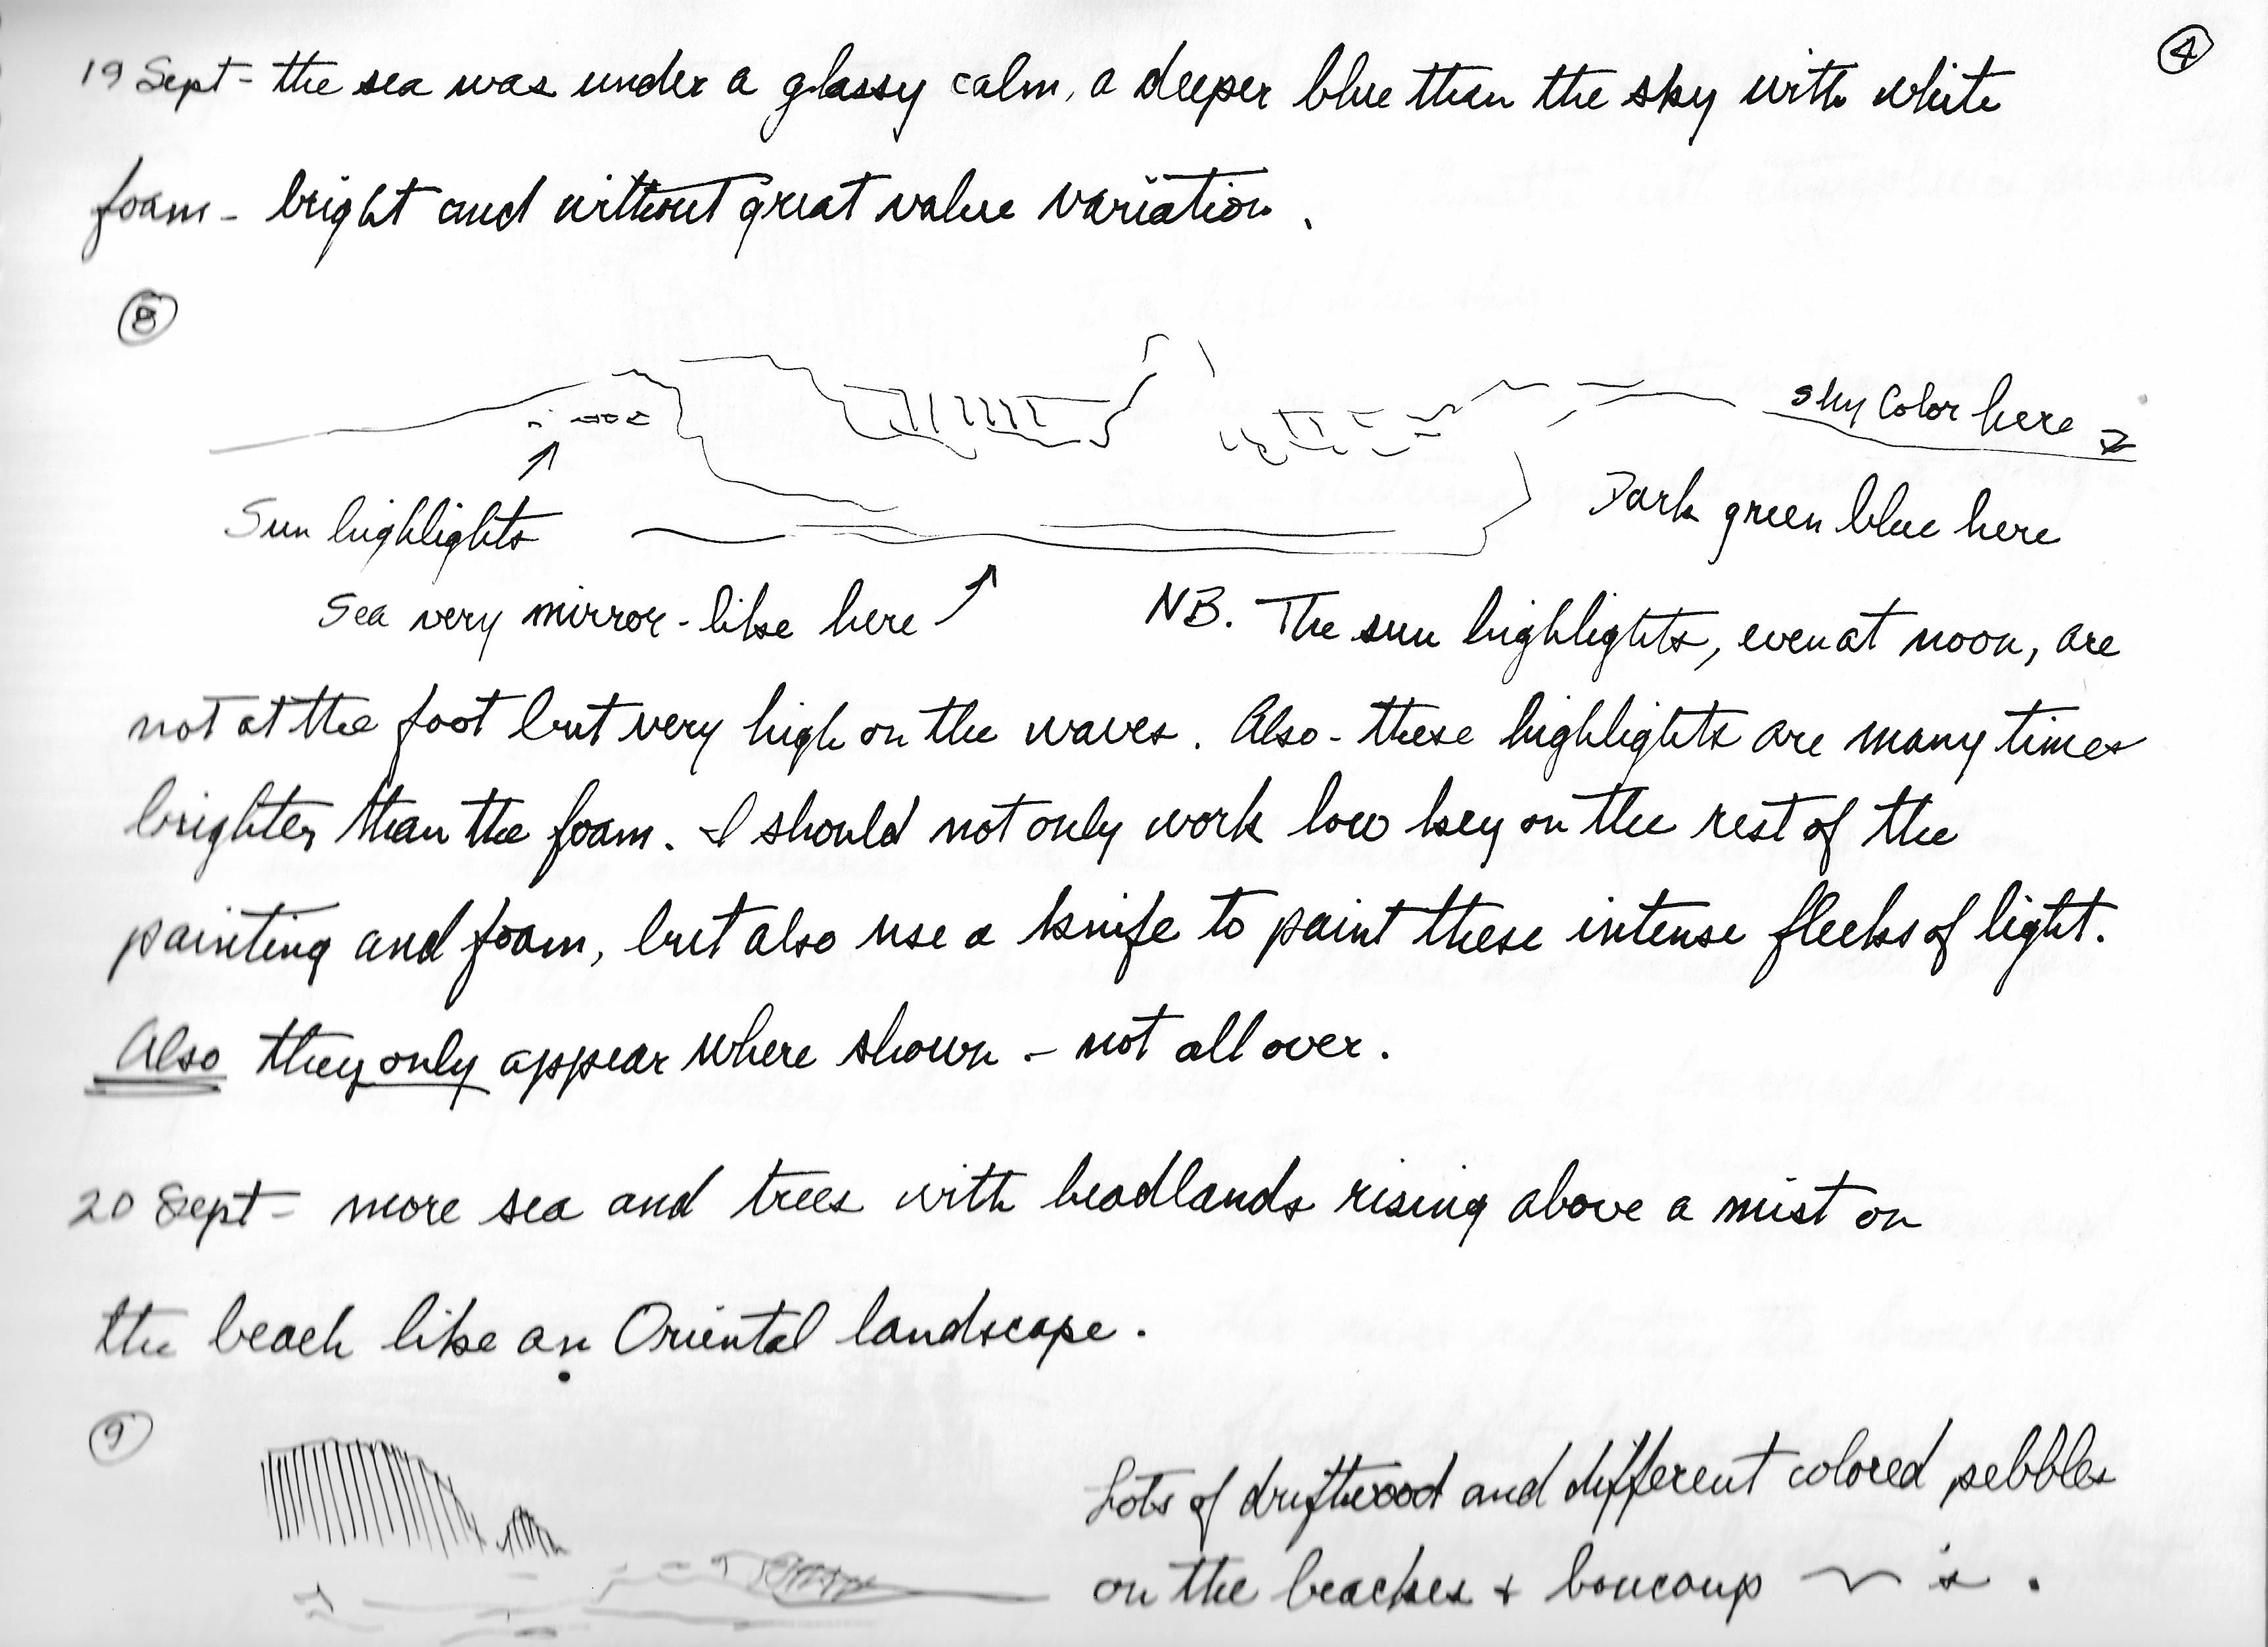 ④
19 Sept - the sea was under a glassy calm, a deeper blue than the sky with white
foam - bright and without great value variation.
⑧
Sky Color here
Dark green blue here
Sun highlights
Sea very mirror-like here
NB. The sun highlights, even at noon, are
not at the foot but very high on the waves. Also - these highlights are many times
brighter than the foam. I should not only work low key on the rest of the
painting and foam, but also use a knife to paint these intense flecks of light.
Also they only appear where shown - not all over.
20 Sept - more sea and trees with headlands rising above a mist on
the beach like an Oriental landscape.
⑨
Lots of driftwood and different colored pebbles
on the beaches + boucoup 's.